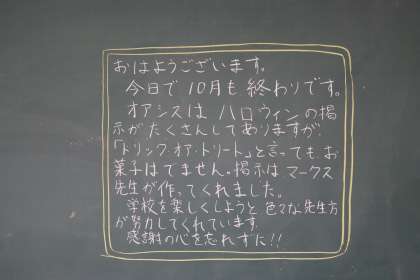 おはようございます。
今日で10月も終わりです。
オアシスは ハロウィンの掲
示がたくさんしてありますが、
「トリック、オア、トリート」と言っても、お
菓子はでません。掲示は マークス
先生が作ってくれました。
学校を楽しくしようと 色々な先生方
が努力してくれています
感謝の心を忘れずに!!